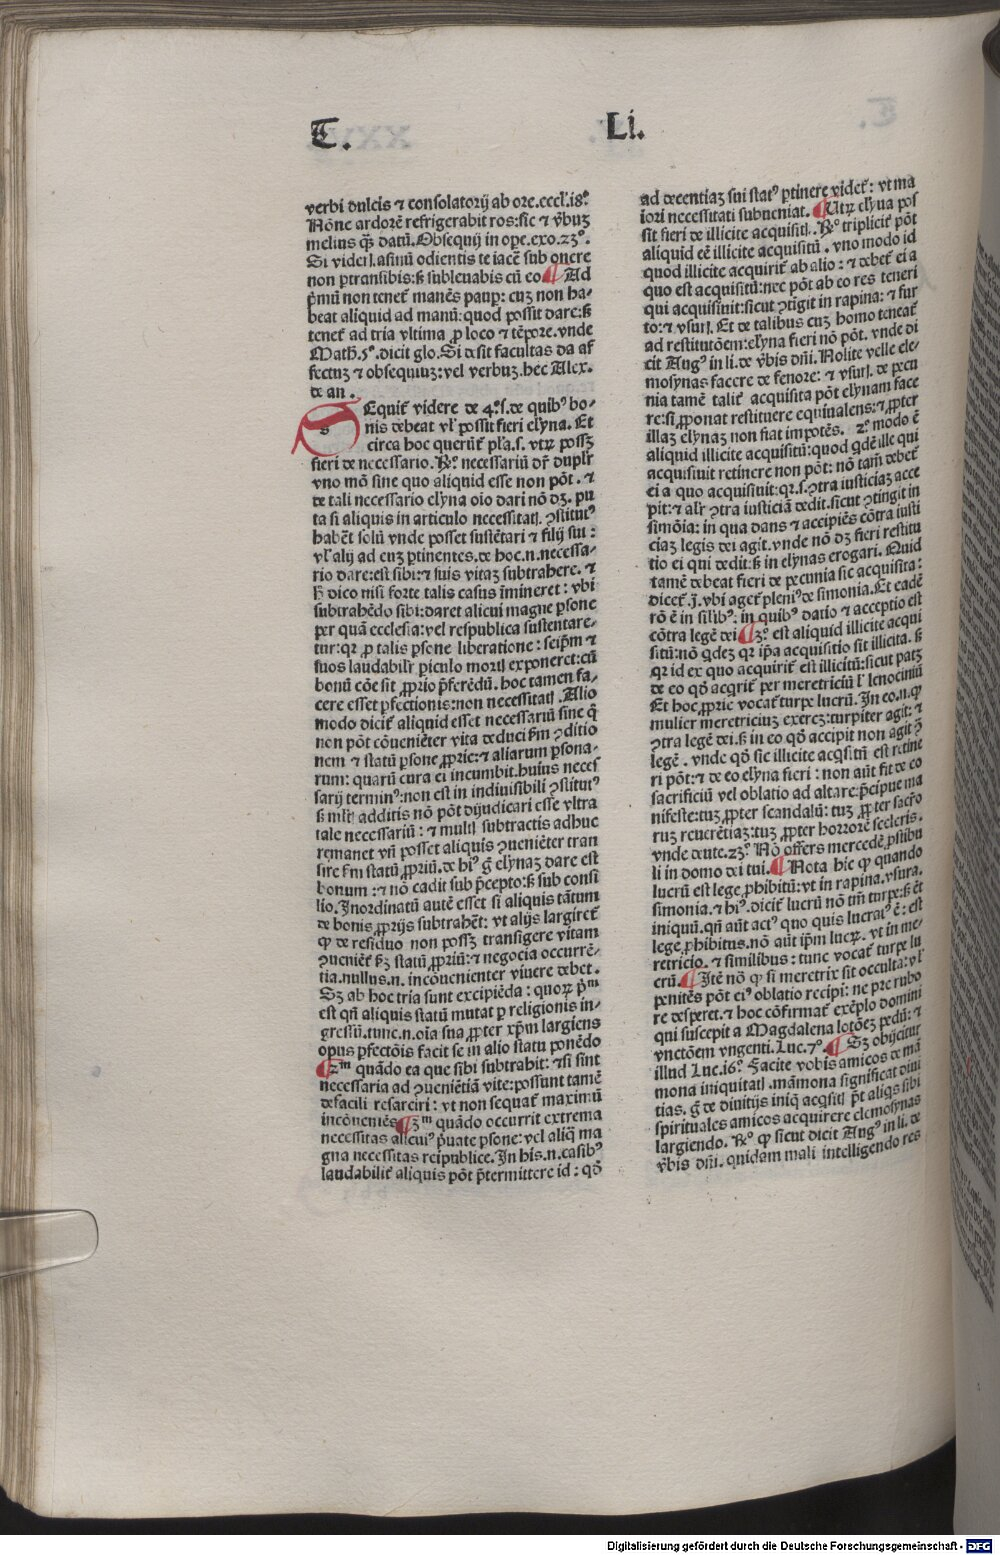 T.
Li.
verbi dulcis ⁊ consolatorij ab ore. eccl'.18.°
Nōne ardorē refrigerabit ros: sic ⁊ v̄buʒ
melius q̄ʒ datū. Obsequij in ope. exo.23°.
Si videɬ. asinū odientis te iacē sub onere
non ptransibis: ß subleuabis cū eo ¶ Ad
p̄mū non tenet̄ manēs paup: cuʒ non ha-
beat aliquid ad manū: quod possit dare: ß
tenet̄ ad tria vltima ꝓ loco ⁊ tēpore. vnde
Math̄.5°. dicit glo. Si desit facultas da af
fectuʒ ⁊ obsequiuʒ: vel verbuʒ. hec Alex.
de an.
s Equit̄ videre de 4°. s. de quibꝰ bo-
nis debeat vɬ possit fieri elȳna. Et
circa hoc querūt̄ pl'a. s. vtꝝ possʒ
fieri de necessario. ℞° necessariū dr̄ duplr̄
vno mō sine quo aliquid esse non pōt. ⁊
de tali necessario elȳna oīo dari nō dʒ. pu
ta si aliquis in articulo necessitatɬ. ꝯstitutꝰ
habēt solū vnde posset sustētari ⁊ filij sui:
vɬ alij ad euʒ ptinentes. de hoc. n. necessa-
rio dare: est sibi: ⁊ suis vitaʒ subtrahere. ⁊
h̄ dico nisi forte talis casus īmineret: vbi
subtrahēdo sibi: daret alicui magne psone
per quā ecclesia: vel respublica sustentare-
tur: qr ꝓ talis psone liberatione: seip̄m ⁊
suos laudabilr̄ piculo mortɬ exponeret: cū
bonū cōe sit ꝓprio p̄ferēdū. hoc tamen fa-
cere esset pfectionis: non necessitatɬ. Alio
modo dicit̄ aliquid esset necessariū sine q̄
non pōt cōueniēter vita deduci fm̄ ꝯditio
nem ⁊ statū psone ꝓprie: ⁊ aliarum psona-
rum: quarū cura ei incumbit. huius neces
sarij terminꝰ: non est in indiuisibili ꝯstitutꝰ
ß mltɬ additis nō pōt dijudicari esse vltra
tale necessariū: ⁊ multɬ subtractis adhuc
remanet vn̄ posset aliquis ꝯueniēter tran
sire fm̄ statū ꝓpriū. de hiꝰ g̊ elȳnaʒ dare est
bonum: ⁊ nō cadit sub p̄cepto: ß sub consi
lio. Inordinatū autē esset si aliquis tātum
de bonis ꝓprijs subtrahēt: vt alijs largiret̄
ꝙ de residuo non possʒ transigere vitam
ꝯueniēt̄ ßʒ statū ꝓpriū: ⁊ negocia occurrē-
tia. nullus. n. incōuenienter viuere debet.
Sʒ ab hoc tria sunt excipiēda: quoꝝ p̄ᵐ
est qn̄ aliquis statū mutat p religionis in-
gressū. tunc. n. oīa sua ꝓpter xp̄m largiens
opus pfectōis facit se in alio statu ponēdo
¶ 2ᵐ quādo ea que sibi subtrahit: ⁊ si sint
necessaria ad ꝯueniētiā vite: possunt tamē
defacili resarciri: vt non sequat̄ maximū
incōueniēs ¶ 3ᵐ quādo occurrit extrema
necessitas alicuiꝰ p̄uate psone: vel aliq̄ ma
gna necessitas reipublice. In his. n. casibꝰ
laudabilit̄ aliquis pōt p̄termittere id: qd̄
ad decentiaʒ sui statꝰ ptinere videt̄: vt ma
iori necessitati subueniat. ¶ Utꝝ elȳna pos
sit fieri de illicite acquisitɬ. ℞° triplicit̄ pōt
aliquid eē illicite acquisitū. vno modo id
quod illicite acquirit̄ ab alio: ⁊ debet̄ ei a
quo est acquisitū: nec pōt ab eo res teneri
qui acquisiuit: sicut ꝯtīgit in rapina: ⁊ fur
to: ⁊ vsurɬ. Et de talibus cuʒ homo teneat̄
ad restitutōem: elȳna fieri nō pōt. vnde di
cit Augꝰ in li. de v̄bis dn̄i. Nolite velle ele-
mosynas facere de fenore: ⁊ vsurɬ. de pecu
nia tamē talit̄ acquisita pōt elȳnam face
re: si ꝓponat restituere equiualens: ⁊ ꝓpter
illaʒ elȳnaʒ non fiat impotēs. 2° modo ē
aliquid illicite acquisitū: quod qdē ille qui
acquisiuit retinere non pōt: nō tam̄ debet̄
ei a quo acquisiuit: qr. s. ꝯtra iusticiaʒ acce
pit: ⁊ alr̄ ꝯtra iusticiā dedit. sicut ꝯtingit in
simōia: in qua dans ⁊ accipiēs cōtra iusti
ciaʒ legis dei agit. vnde nō dʒ fieri restitu
tio ei qui dedit: ß in elȳnas erogari. Quid
tamē debeat fieri de pecunia sic acquisita:
dicet̄. j. vbi aget̄ pleniꝰ de simonia. Et eadē
rō ē in silibꝰ: in quibꝰ datio ⁊ acceptio est
cōtra legē dei ¶ 3° est aliquid illicite acqui
situ: nō qdeʒ qr ip̄a acquisitio sit illicita. ß
qr id ex quo acquirit̄ est illicitū: sicut patʒ
de eo qd̄ acqrit̄ per meretriciū ɬ lenociniū
Et hoc ꝓprie vocat̄ turpe lucrū. In eo. n. ꝙ
mulier meretriciuʒ exercʒ: turpiter agit: ⁊
ꝯtra legē dei. ß in eo qd̄ accipit non agit ꝯ
legē. vnde qd̄ sic illicite acqsitū est retine
ri pōt: ⁊ de eo elȳna fieri: non aūt fit de eo
sacrificiū vel oblatio ad altare: p̄cipue ma
nifeste: tuʒ ꝓpter scandalū: tuʒ ꝓpter sacro̊
ruʒ reuerētiaʒ: tuʒ ꝓpter horrorē sceleris.
vnde deute.23.° Nō offers mercedē pstibu
li in domo dei tui. ¶ Nota hic ꝙ quando
lucrū est lege ꝓhibitū: vt in rapina. vsura.
simonia. ⁊ hiꝰ. dicit̄ lucrū nō tm̄ turpe: ß ēt
iniquū. qn̄ aūt actꝰ quo quis lucrat̄ ē: est
lege ꝓhibitus. nō aūt ip̄m lucꝝ. vt in me-
retricio. ⁊ similibus: tunc vocat̄ turpe lu
crū. ¶ Itē nō ꝙ si meretrix sit occulta: vɬ
penitēs pōt eiꝰ oblatio recipi: ne pre rubo
re desperet. ⁊ hoc cōfirmat̄ exēplo domini
qui suscepit a Magdalena lotōeʒ pedū: ⁊
vnctōem vngenti. Luc.7°. ¶ Sʒ obijcitur
illud Luc.16.° Facite vobis amicos de mā
mona iniquitatɬ. māmona significat diui
tias. g̊ de diuitijs iniq̄ acqsitɬ pt̄ aliqs sibi
spirituales amicos acquirere elemosynas
largiendo. ℞° ꝙ sicut dicit Augꝰ in li. de
v̄bis dn̄i. quidam mali intelligendo res
Digitalisierung gefördert durch die Deutsche Forschungsgemeinschaft - DFG